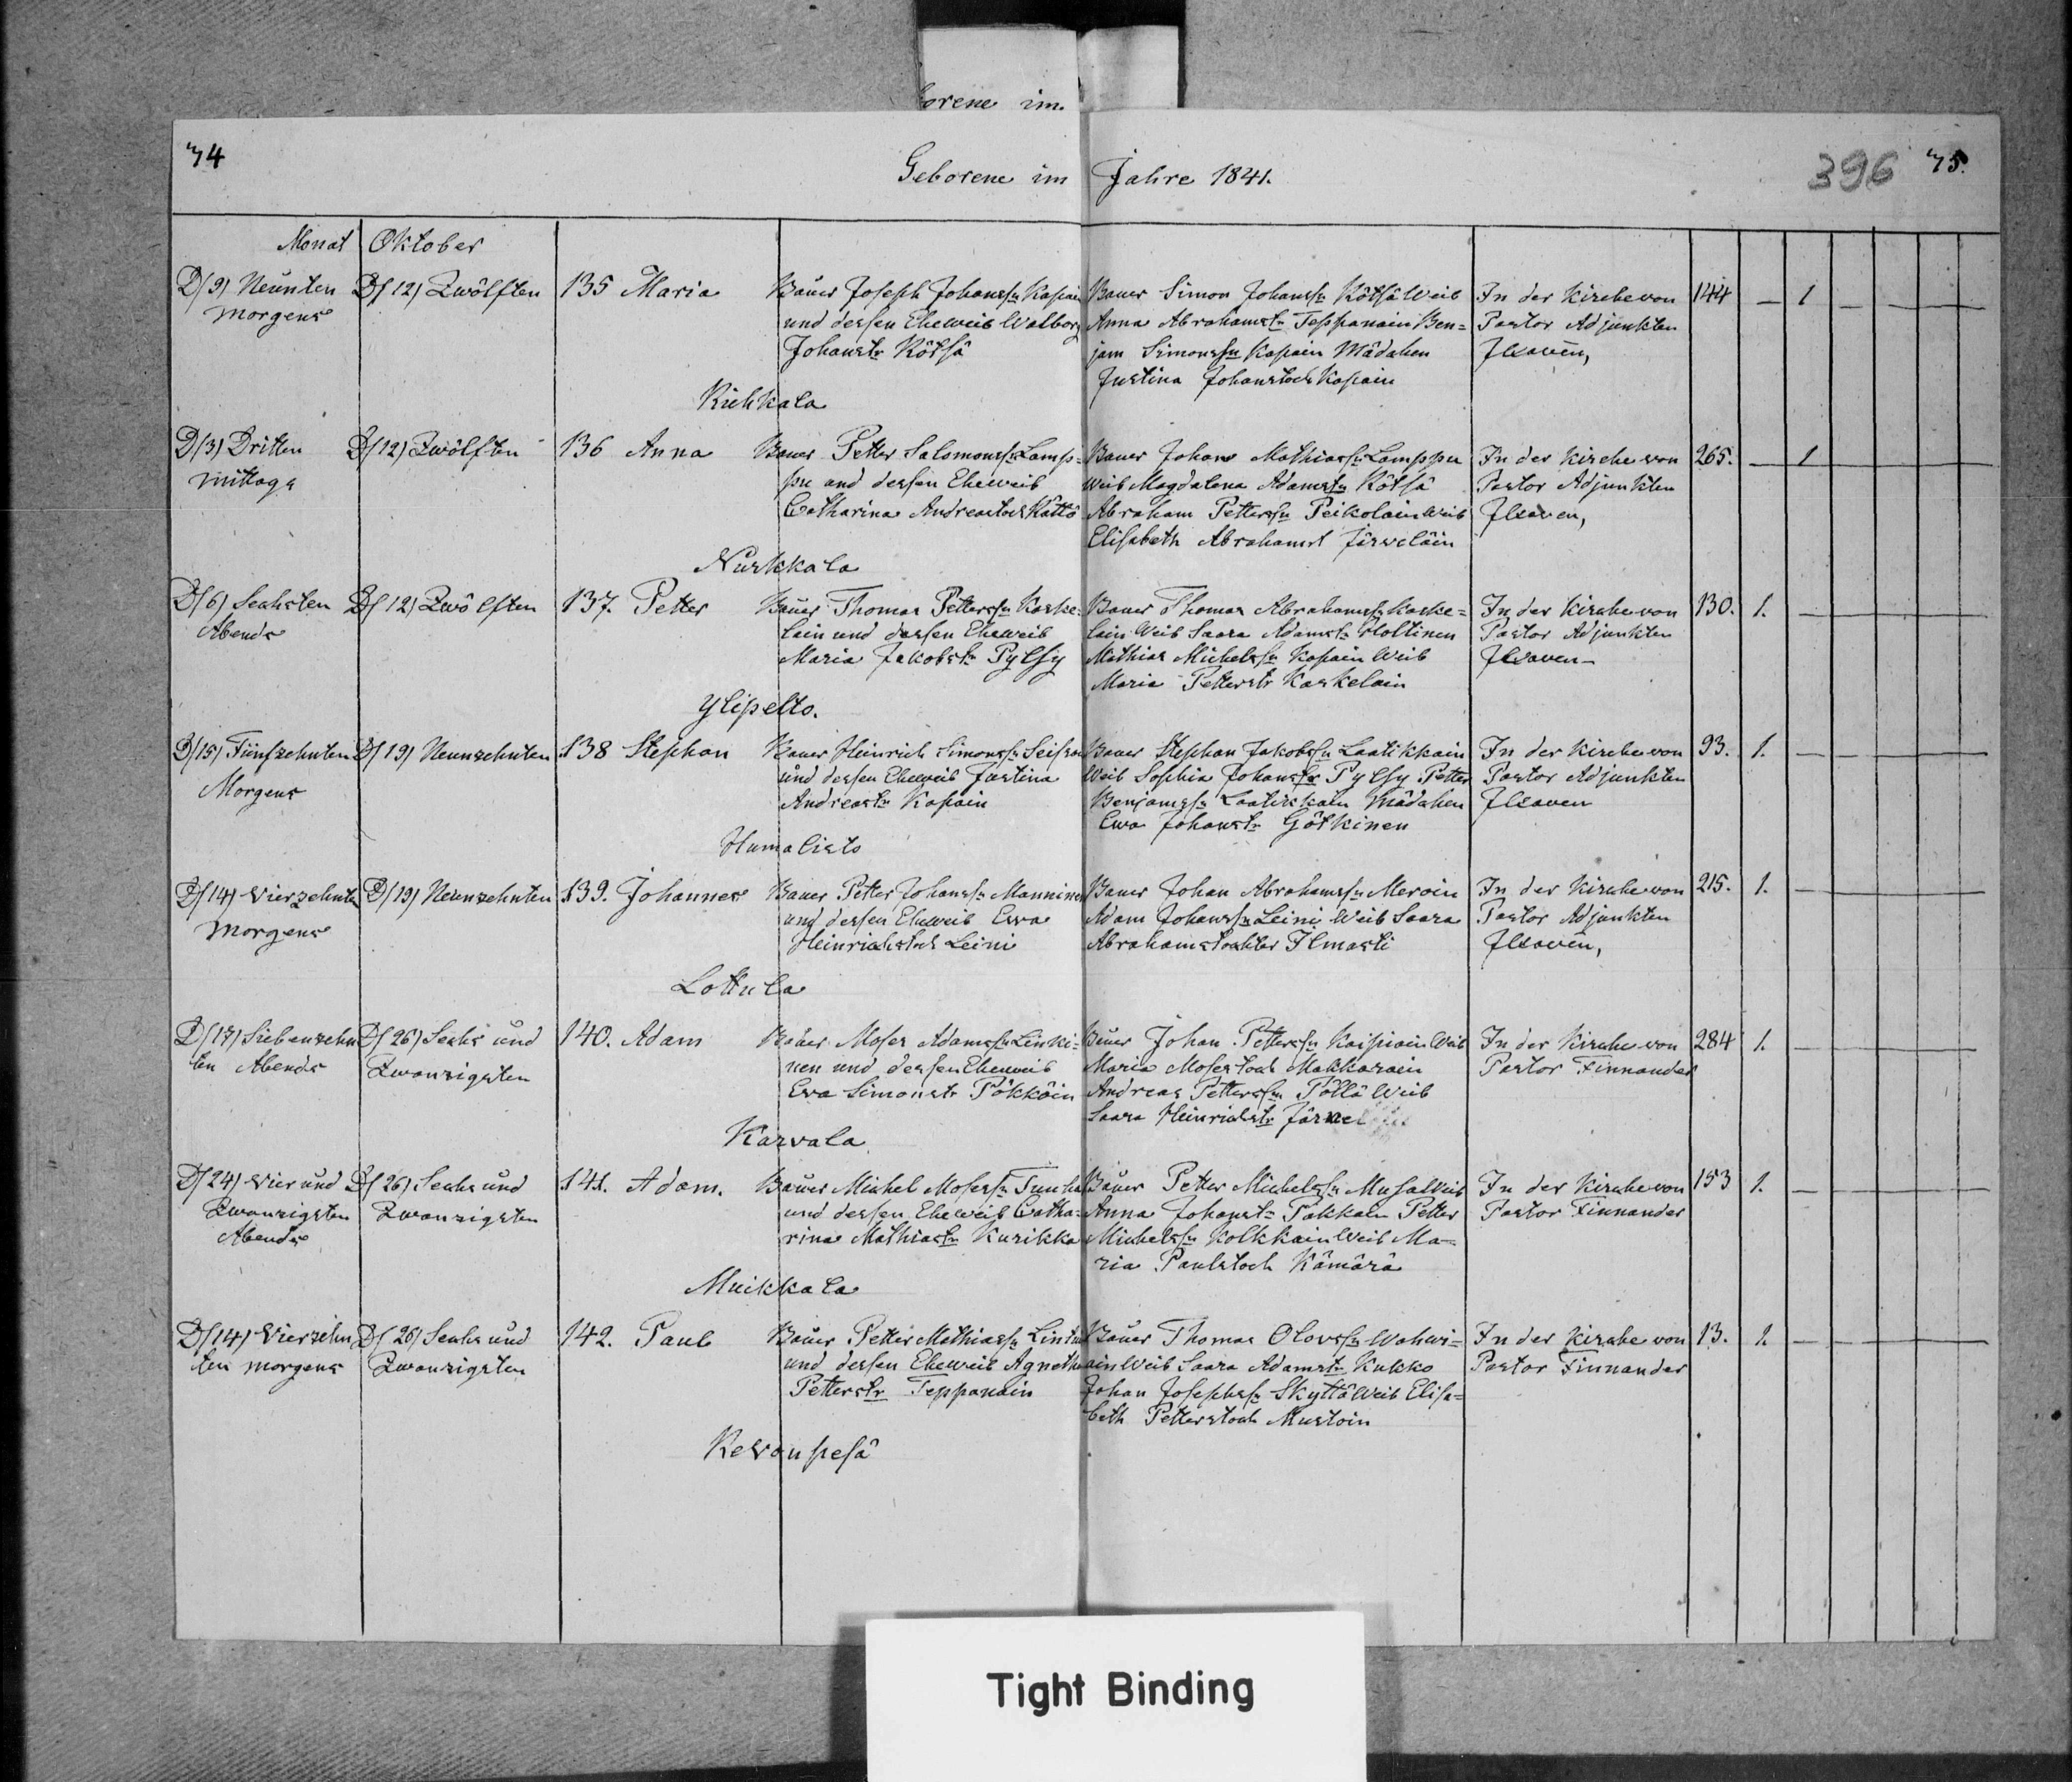 orene im
74
Geborene im Jahre 1841.
396 75.
Monat Oktober
D/9/ Neunten D/12/ Zwölften 135 Maria Bauer Joseph Johanssn Kapain Bauer Simon Johanssn Kötsä Weib In der Kirche von 144 — 1 — — — —
Morgens und dessen Eheweib Walborg Anna Abrahamstr Teppanain Ben= Pastor Adjunkten
Johanstr Kötsä jam Simonssn Kapain Mädchen
Justina Johanstoch Kapain
Kuhkala
D/3/ Dritten D/12/ Zwölften 136 Anna Bauer Petter Salomonssn Lamp= Bauer Johan Mathiassn Lamppu In der Kirche von 265. — 1 — — — —
mittags pu und dessen Eheweib Weib Magdalena Adamstr Kötsä Pastor Adjunkten
Catharina Andreastoch Kättö Abraham Petterssn Peikolain Weib
Elisabeth Abrahamst Järveläin
Nurkkala
D/6/ Sechsten D/12/ Zwölften 137. Petter Bauer Thomas Petterssn Kaske= Bauer Thomas Abrahamssn Kaske= In der Kirche von 130. 1. — — — — —
Abends lain und dessen Eheweib lain Weib Saara Adamstr Pastor Adjunkten
Maria Jakobstr Pylsy Mathias Michelssn Kapain Weib
Maria Petterstr Kaskelain
Ylipelto.
D/15/ Fünfzehnten D/19/ Neunzehnten 138 Stephan Bauer Heinrich Simonssn Bauer Stephan Jakobssn Laatikkain In der Kirche von 93. 1. — — — — —
Morgens und dessen Eheweib Justina Weib Sophia Johanstr Pylsy Petter Pastor Adjunkten
Andreastr Kapain Benjamssn Laatikkain Mädchen
Ewa Johanstr Götkinen
Humalisto
D/14/ Vierzehnten D/19/ Neunzehnten 139. Johannes Bauer Petter Johanssn Manninen Bauer Johan Abrahamssn Meroin In der Kirche von 215. 1. — — — — —
Morgens und dessen Eheweib Ewa Adam Johanssn Leini Weib Saara Pastor Adjunkten
Heinrichstoch Leini Abrahamstochter Ilmasti
Lottula
D/17/ Siebenzehn D/26/ Sechs und 140. Adam Bauer Moses Adamssn Linki= Bauer Johan Petterssn Kaipiain Weib In der Kirche von 284 1. — — — — —
ten Abends Zwanzigsten nen und dessen Eheweib Maria Mosestoch Makkarain Pastor Finnander
Eva Simonstr Pökköin Andreas Petterssn Pöllä Weib
Saara Heinrichstr
Karvala
D/24/ Vier und D/26/ Sechs und 141. Adam. Bauer Michel Mosessn Bauer Petter Michelssn Musa Weib In der Kirche von 153 1. — — — — —
Zwanzigsten Zwanzigsten und dessen Eheweib Catha= Anna Johanstr Pakkain Petter Pastor Finnander
Abends rina Mathiastr Kurikka Michelssn Kolkkain Weib Ma=
ria Paulstoch Kämärä
Muikkala
D/14/ Vierzehn D/26/ Sechs und 142. Paul Bauer Petter Mathiassn Lintu Bauer Thomas Olovssn Wahvi= In der Kirche von 13. 1 — — — — —
ten morgens Zwanzigsten und dessen Eheweib Agnetha ain Weib Saara Adamstr Kukko Pastor Finnander
Petterstr Teppanain Johan Josephssn Skyttä Weib Elisa=
beth Petterstoch Mustoin
Revonpesä
Tight Binding